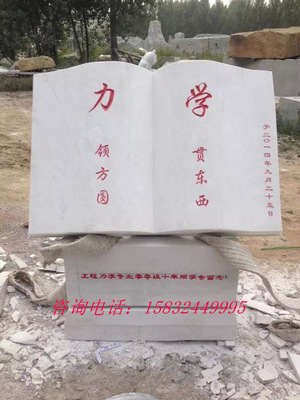 力
领方圆
学
贯东西
于二〇一四年九月二十五日
工程力学专业零零级十年同学会留念
咨询电话：15832449995